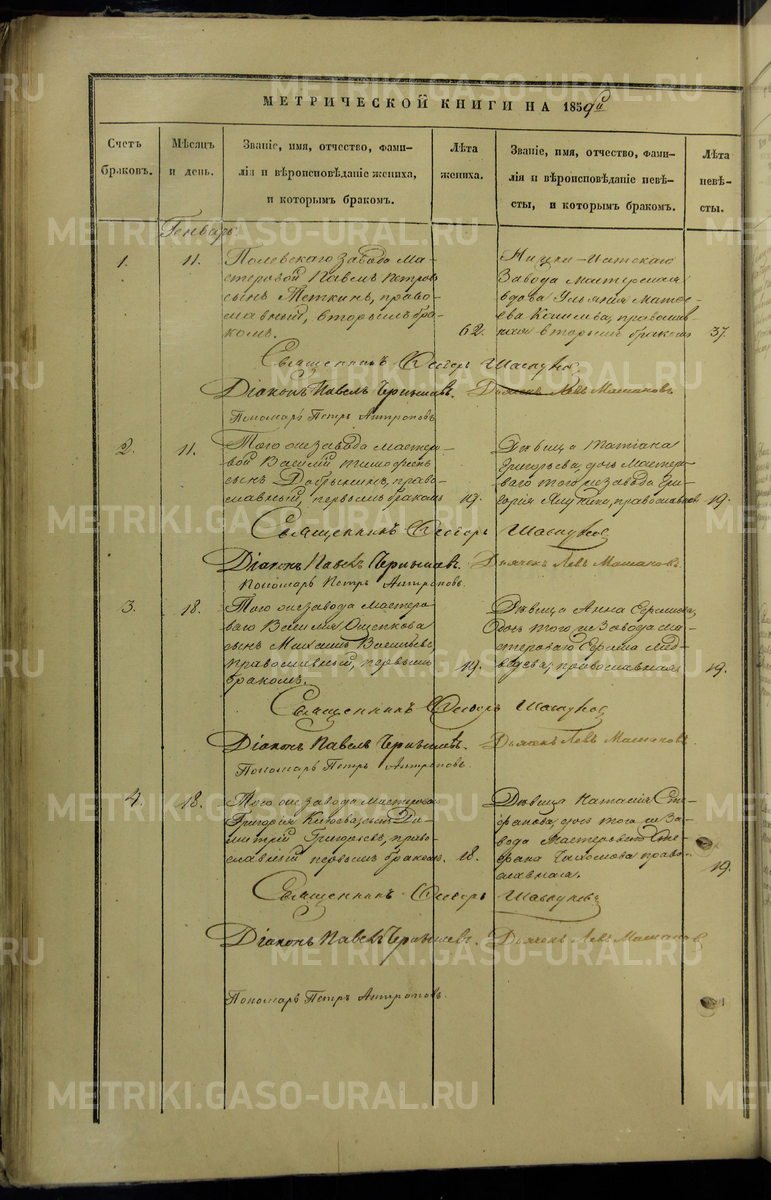 МЕТРИЧЕСКОЙ КНИГИ НА 1859й
Счетъ
браковъ.
Мѣсяцъ
и день.
Званіе, имя, отчество, фами-
лія и вѣроисповѣданіе жениха,
и которымъ бракомъ.
Лѣта
жениха.
Званіе, имя, отчество, фами-
лія и вѣроисповѣданіе невѣ-
сты, и которымъ бракомъ.
Лѣта
невѣ-
сты.
Генварь
1.
11.
Полевскаго завода Ма-
стеровой Павелъ Петровъ
сынъ Теткинъ, право-
славный, вторымъ бра-
комъ.
62.
Завода Мастерская
вдова Ульяния
вторымъ бракомъ
37.
Священникъ Ѳеодоръ
Діаконъ Павелъ Чернышевъ. Дьячекъ Левъ
Пономарь Петръ Антроповъ
2.
11.
Того же завода Мастеро-
вой Василій Тимоѳеевъ
сынъ Добрынинъ, право-
славный, первымъ бракомъ
19.
Дѣвица Татіана
Григорьева, дочь Мастеро-
ваго того же завода Гри-
горія православная
19.
Священникъ Ѳеодоръ
Діаконъ Павелъ Чернышевъ. Дьячекъ Левъ
Пономарь Петръ Антроповъ.
3.
18.
Того же завода Мастеро-
ваго Василія Ощепкова
сынъ Михаилъ Васильевъ,
православный, первымъ
бракомъ.
19.
Дѣвица Анна Ефимова,
дочь того же завода ма-
стероваго Ефима Мед-
ведева, православная
19.
Священникъ Ѳеодоръ
Діаконъ Павелъ Чернышевъ. Дьячекъ Левъ
Пономарь Петръ Антроповъ.
4.
18.
Того же завода Мастероваго
Григорія сынъ Ди-
митрій Григорьевъ, право-
славный первымъ бракомъ.
18.
Дѣвица Наталія Сте-
фанова, дочь того же За-
вода Мастероваго Сте-
фана право-
славная.
19.
Священникъ Ѳеодоръ
Діаконъ Павелъ Чернышевъ. Дьячекъ Левъ
Пономарь Петръ Антроповъ.
METRIKI.GASO-URAL.RU